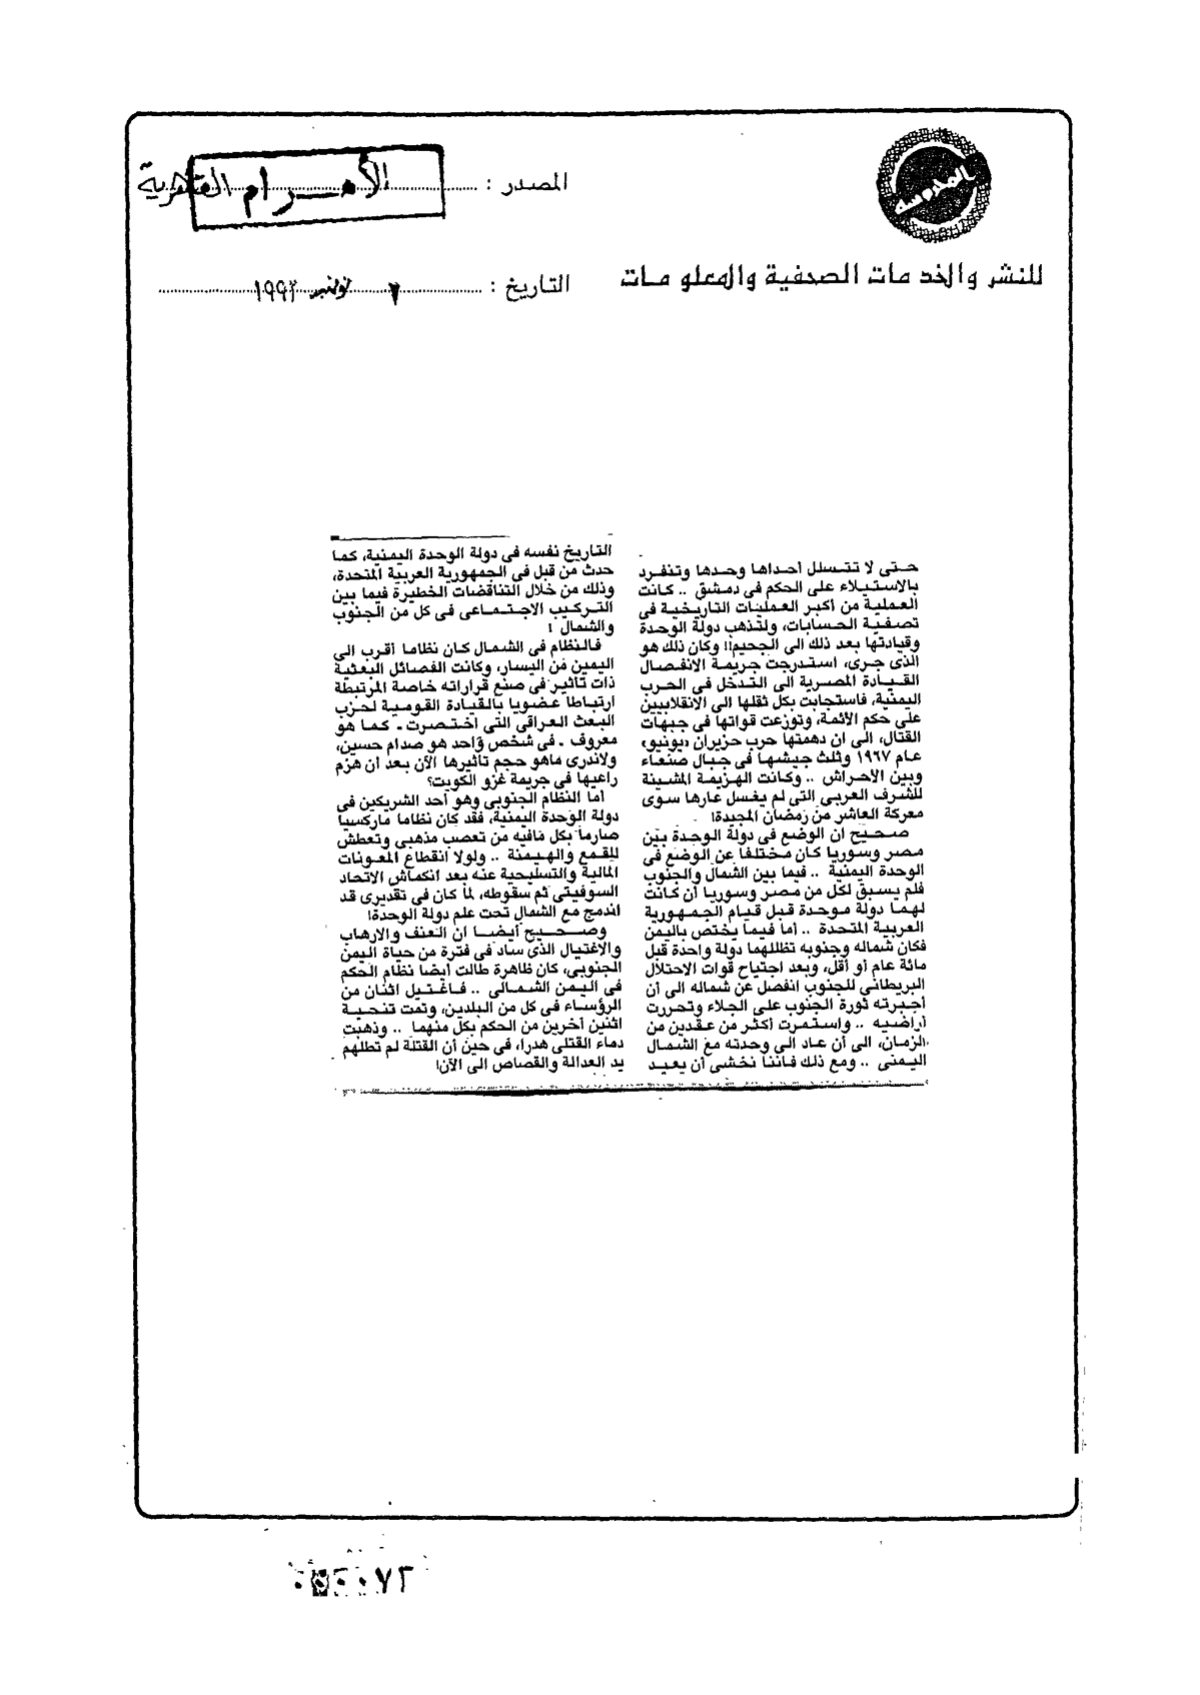 المصدر : الأهرام القاهرية
للنشر والخدمات الصحفية والمعلومات
التاريخ : نوفمبر ١٩٩٢
حتى لا تتسلل أحداها وحدها وتنفرد
بالاستيلاء على الحكم فى دمشق .. كانت
العملية من أكبر العمليات التاريخية فى
تصفية الحسابات، ولتذهب دولة الوحدة
وقيادتها بعد ذلك الى الجحيم!! وكان ذلك هو
الذى جرى، استدرجت جريمة الانفصال
القيادة المصرية الى التدخل فى الحرب
اليمنية، فاستجابت بكل ثقلها الى الانقلابيين
على حكم الأئمة، وتوزعت قواتها فى جبهات
القتال، الى ان دهمتها حرب حزيران «يونيو»
عام ١٩٦٧ وثلث جيشها فى جبال صنعاء
وبين الاحراش .. وكانت الهزيمة المشينة
للشرف العربى التى لم يغسل عارها سوى
معركة العاشر من رمضان المجيدة!
صحيح ان الوضع فى دولة الوحدة بين
مصر وسوريا كان مختلفا عن الوضع فى
الوحدة اليمنية .. فيما بين الشمال والجنوب
فلم يسبق لكل من مصر وسوريا أن كانت
لهما دولة موحدة قبل قيام الجمهورية
العربية المتحدة .. أما فيما يختص باليمن
فكان شماله وجنوبه تظللهما دولة واحدة قبل
مائة عام أو أقل، وبعد اجتياح قوات الاحتلال
البريطانى للجنوب انفصل عن شماله الى أن
أجبرته ثورة الجنوب على الجلاء وتحررت
أراضيه .. واستمرت أكثر من عقدين من
الزمان، الى أن عاد الى وحدته مع الشمال
اليمنى .. ومع ذلك فاننا نخشى أن يعيد
التاريخ نفسه فى دولة الوحدة اليمنية، كما
حدث من قبل فى الجمهورية العربية المتحدة،
وذلك من خلال التناقضات الخطيرة فيما بين
التركيب الاجتماعى فى كل من الجنوب
والشمال !
فالنظام فى الشمال كان نظاما أقرب الى
اليمين من اليسار، وكانت الفصائل البعثية
ذات تأثير فى صنع قراراته خاصة المرتبطة
ارتباطا عضويا بالقيادة القومية لحزب
البعث العراقى التى اختصرت ـ كما هو
معروف ـ فى شخص واحد هو صدام حسين،
ولاندرى ماهو حجم تأثيرها الآن بعد أن هزم
راعيها فى جريمة غزو الكويت؟
أما النظام الجنوبى وهو أحد الشريكين فى
دولة الوحدة اليمنية، فقد كان نظاما ماركسيا
صارما بكل مافيه من تعصب مذهبى وتعطش
للقمع والهيمنة .. ولولا انقطاع المعونات
المالية والتسليحية عنه بعد انكماش الاتحاد
السوفيتى ثم سقوطه، لما كان فى تقديرى قد
اندمج مع الشمال تحت علم دولة الوحدة!
وصحيح أيضا ان العنف والارهاب
والاغتيال الذى ساد فى فترة من حياة اليمن
الجنوبى، كان ظاهرة طالت أيضا نظام الحكم
فى اليمن الشمالى .. فاغتيل اثنان من
الرؤساء فى كل من البلدين، وتمت تنحية
اثنين آخرين من الحكم بكل منهما .. وذهبت
دماء القتلى هدرا، فى حين أن القتلة لم تطلهم
يد العدالة والقصاص الى الآن!